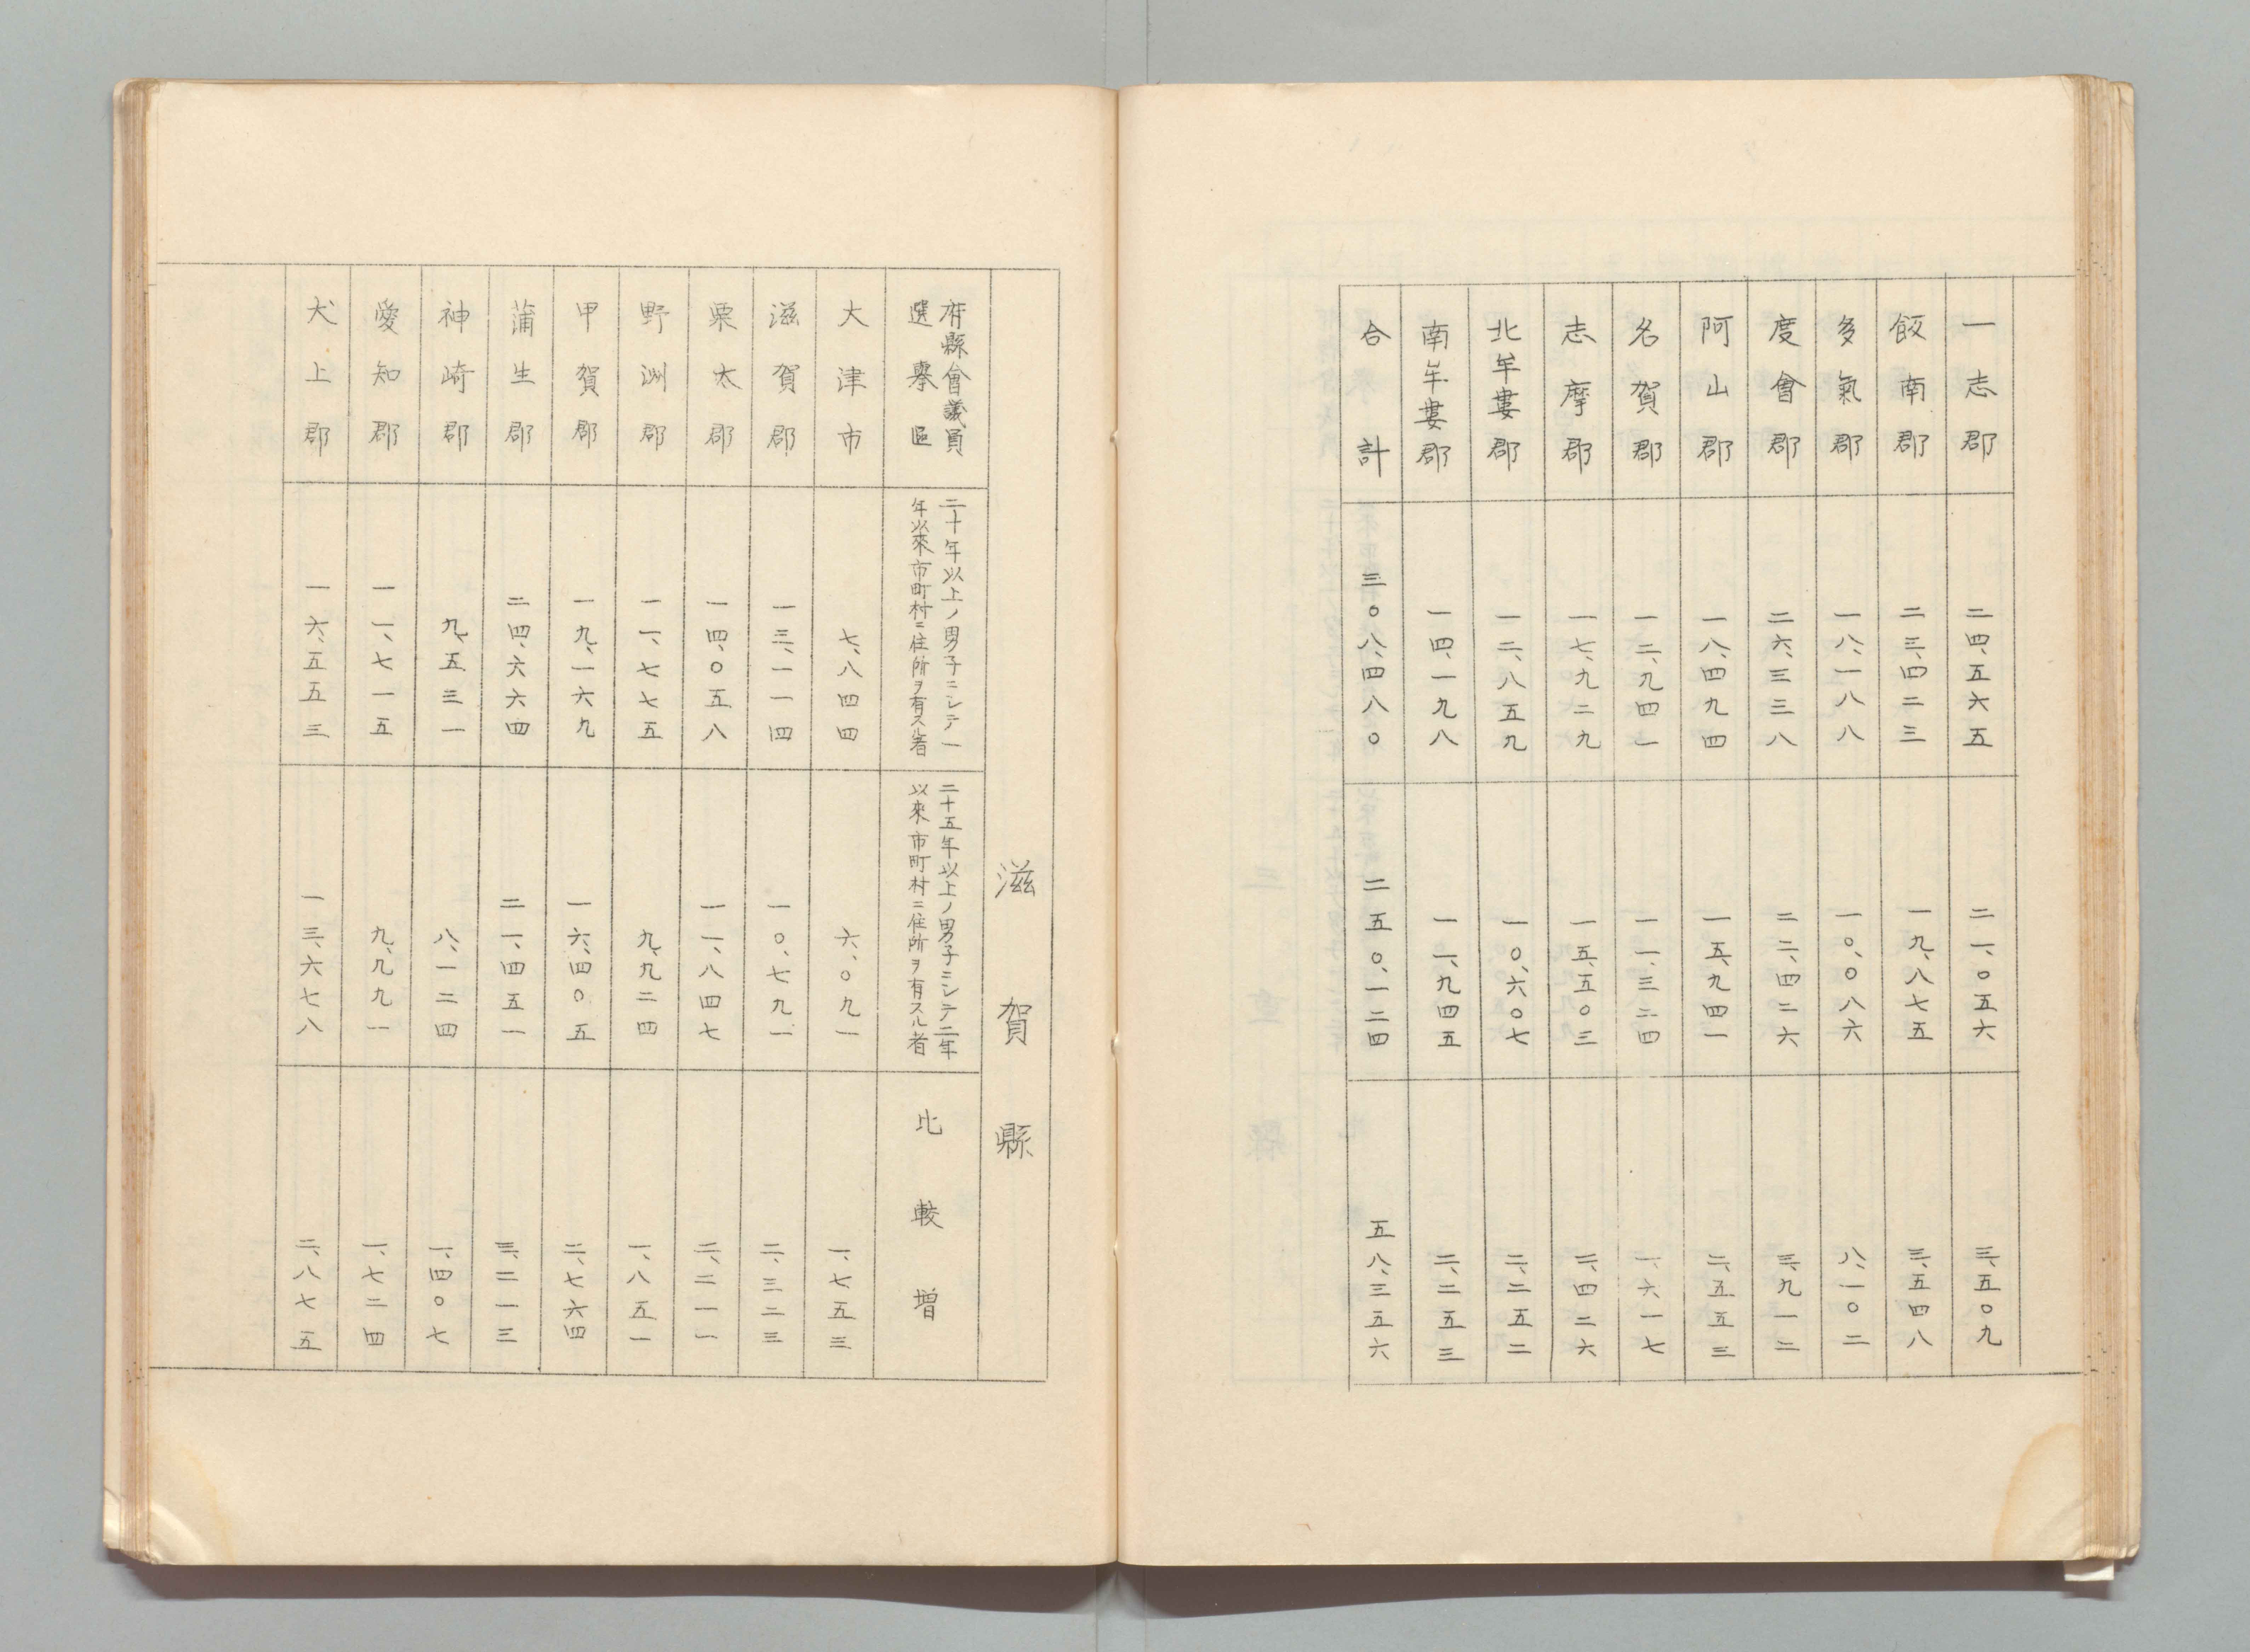 一志郡 二四、五六五 二一、〇五六 三、五〇九
飯南郡 二三、四二三 一九、八七五 三、五四八
多氣郡 一八、一八八 一〇、〇八六 八、一〇二
度會郡 二六、三三八 二二、四二六 三、九一二
阿山郡 一八、四九四 一五、九四一 二、五五三
名賀郡 一二、九四一 一一、三二四 一、六一七
志摩郡 一七、九二九 一五、五〇三 二、四二六
北牟婁郡 一二、八五九 一〇、六〇七 二、二五二
南牟婁郡 一四、一九八 一一、九四五 二、二五三
合計 三〇八、四八〇 二五〇、一二四 五八、三五六
滋賀縣
府縣會議員
選擧區
二十年以上ノ男子ニシテ一
年以來市町村ニ住所ヲ有スル者
二十五年以上ノ男子ニシテ二年
以來市町村ニ住所ヲ有スル者
比較增
大津市 七、八四四 六、〇九一 一、七五三
滋賀郡 一三、一一四 一〇、七九一 二、三二三
栗太郡 一四、〇五八 一一、八四七 二、二一一
野洲郡 一一、七七五 九、九二四 一、八五一
甲賀郡 一九、一六九 一六、四〇五 二、七六四
蒲生郡 二四、六六四 二一、四五一 三、二一三
神崎郡 九、五三一 八、一二四 一、四〇七
愛知郡 一一、七一五 九、九九一 一、七二四
犬上郡 一六、五五三 一三、六七八 二、八七五